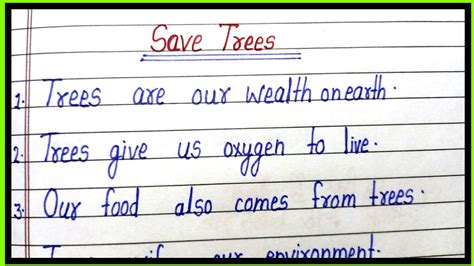 Save Trees
1. Trees are our wealth on earth.
2. Trees give us oxygen to live.
3. Our food also comes from trees.
our environment.